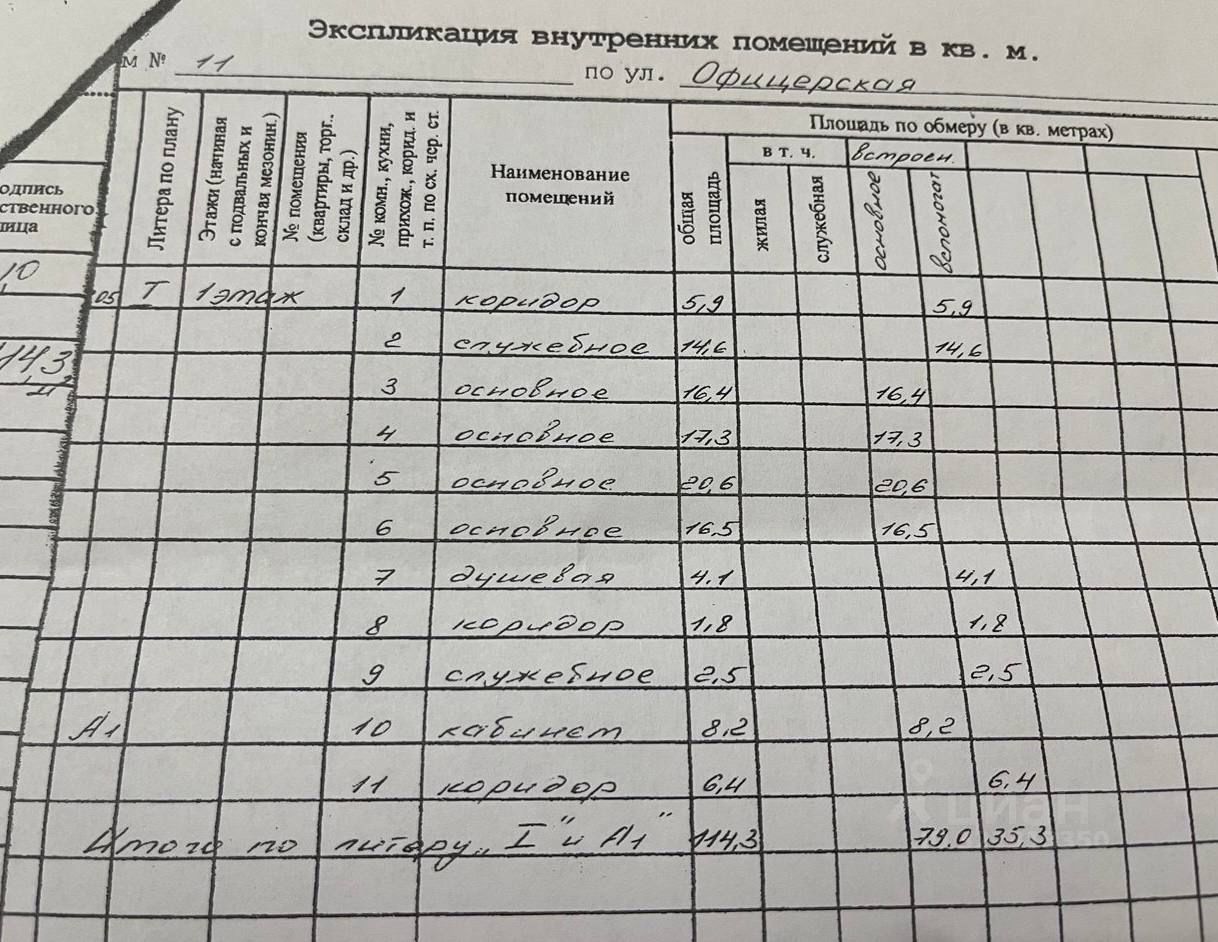 Экспликация внутренних помещений в кв. м.
м № 11 по ул. Офицерская
одпись
ственного
лица
10
114,3
Литера по плану
Этажи (начиная с подвальных и кончая мезонин.)
№ помещения (квартиры, торг.. склад и др.)
№ комн., кухни, прихож., корид. и т. п. по сх. чер. ст.
Наименование помещений
Площадь по обмеру (в кв. метрах)
общая площадь
в т. ч.
жилая
служебная
встроен.
основное
вспомогат
05 I 1 этаж 1 коридор 5,9 5,9
2 служебное 14,6 14,6
3 основное 16,4 16,4
4 основное 17,3 17,3
5 основное 20,6 20,6
6 основное 16,5 16,5
7 душевая 4.1 4,1
8 коридор 1,8 1,8
9 служебное 2,5 2,5
А1 10 кабинет 8,2 8,2
11 коридор 6,4 6,4
Итого по литеру „I" и А1" 114,3 79.0 35,3
циан